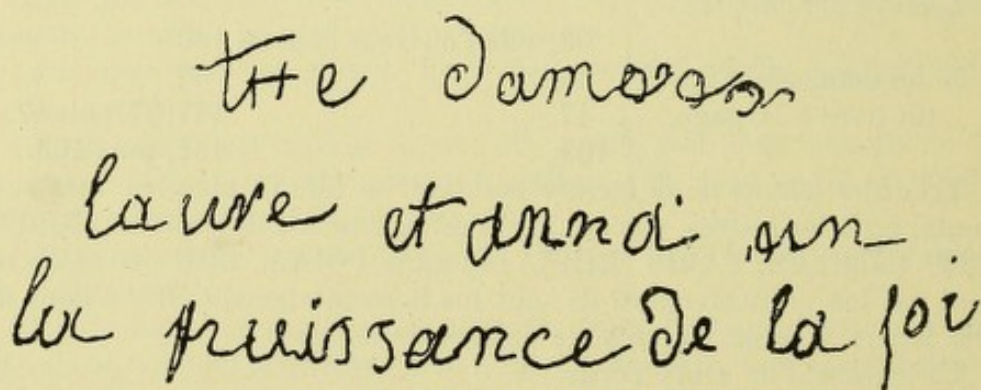 tHe Damoson
laure et anna un
la puissance de la foi